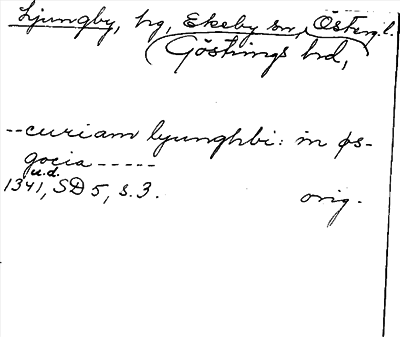 Ljungby, hg, Ekeby sn, Österg.l.
(Göstrings hd,
--curiam lyunghbi: in øs-
gocia -----
u.d.
1341, SD 5, s. 3. orig.